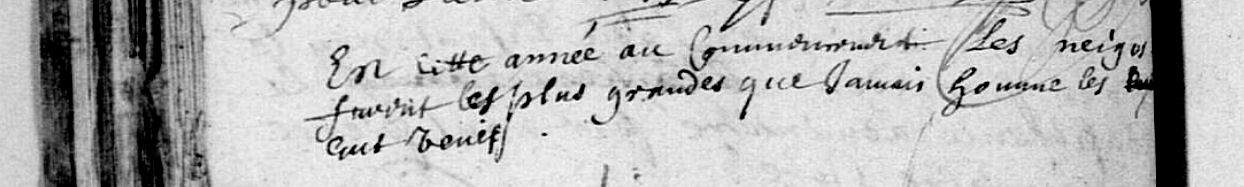 En cette année au Commencement les neiges
furent les plus grandes que Jamais homme les
eut veues